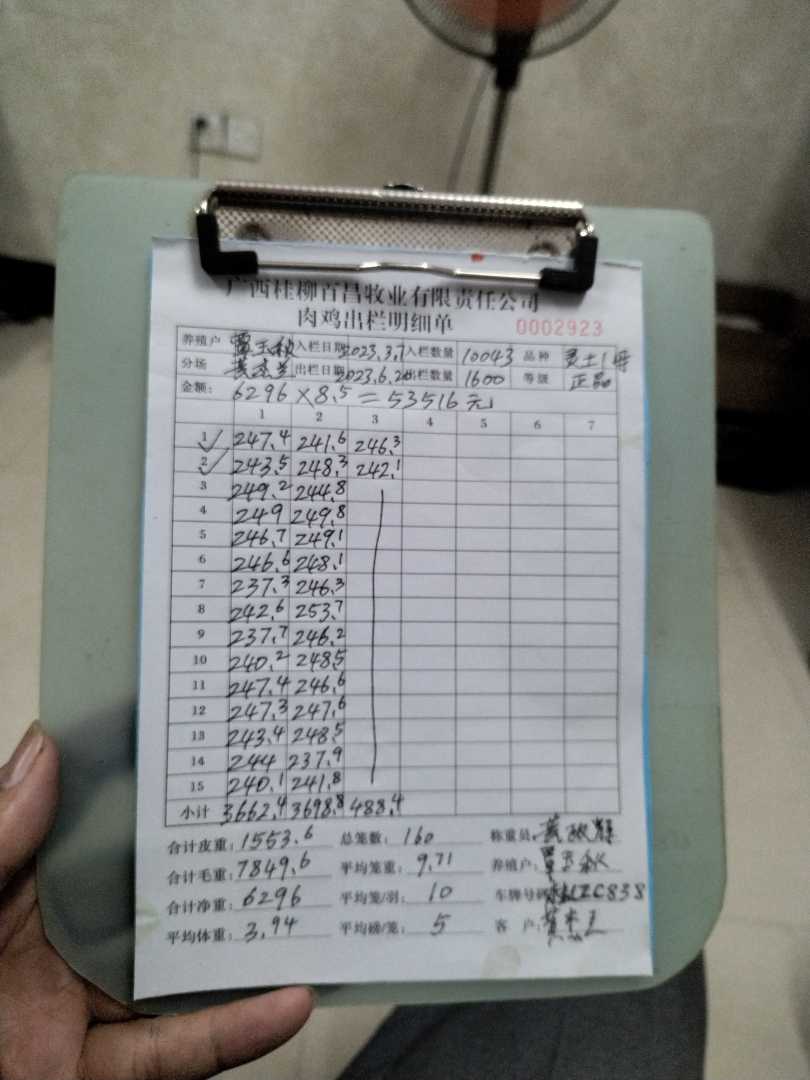 广西桂柳百昌牧业有限责任公司
肉鸡出栏明细单 0002923
养殖户 覃玉秋 入栏日期 2023.3.7 入栏数量 10043 品种 灵土1号
分场 出栏日期 2023.6.2 出栏数量 1600 等级 正品
金额: 6296×8.5=53516元
1 2 3 4 5 6 7
1 247.4 241.6 246.3
2 243.5 248.3 242.1
3 249.2 244.8
4 249 249.8
5 246.7 249.1
6 246.6 248.1
7 237.3 246.3
8 242.6 253.7
9 237.7 246.2
10 240.2 248.5
11 247.4 246.6
12 247.3 247.6
13 243.4 248.5
14 244 237.9
15 240.1 241.8
小计 3662.4 3698.8 488.4
合计皮重: 1553.6 总笼数: 160 称重员:
合计毛重: 7849.6 平均笼重: 9.71 养殖户: 覃玉秋
合计净重: 6296 平均笼/羽: 10 车牌号码
平均体重: 3.94 平均磅/笼: 5 客户: